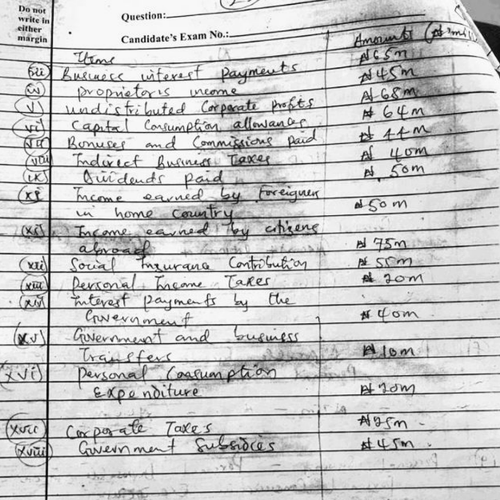 Do not
write in
either
margin
Question:
Candidate's Exam No.:
Items Amounts (₦
(iii) Business interest payments ₦65m
(iv) proprietoris income ₦45m
(v) undistributed Corporate profits ₦68m
(vi) Capital Consumption allowances ₦64m
(vii) Bonuses and Commissions paid ₦44m
(viii) Indirect Business Taxes ₦40m
(ix) Dividends paid ₦50m
Income earned by foreigners
in home country ₦50m
(xi) Income earned by citizens
abroad ₦75m
(xii) Social Insurance Contribution ₦55m
(xiii) Personal Income Taxes ₦20m
(xiv) Interest payments by the
Government ₦40m
(xv) Government and business
Transfers ₦10m
(xvi) Personal Consumption
Expenditure
(xvii) Corporate Taxes ₦25m
(xviii) Government Subsidies ₦45m